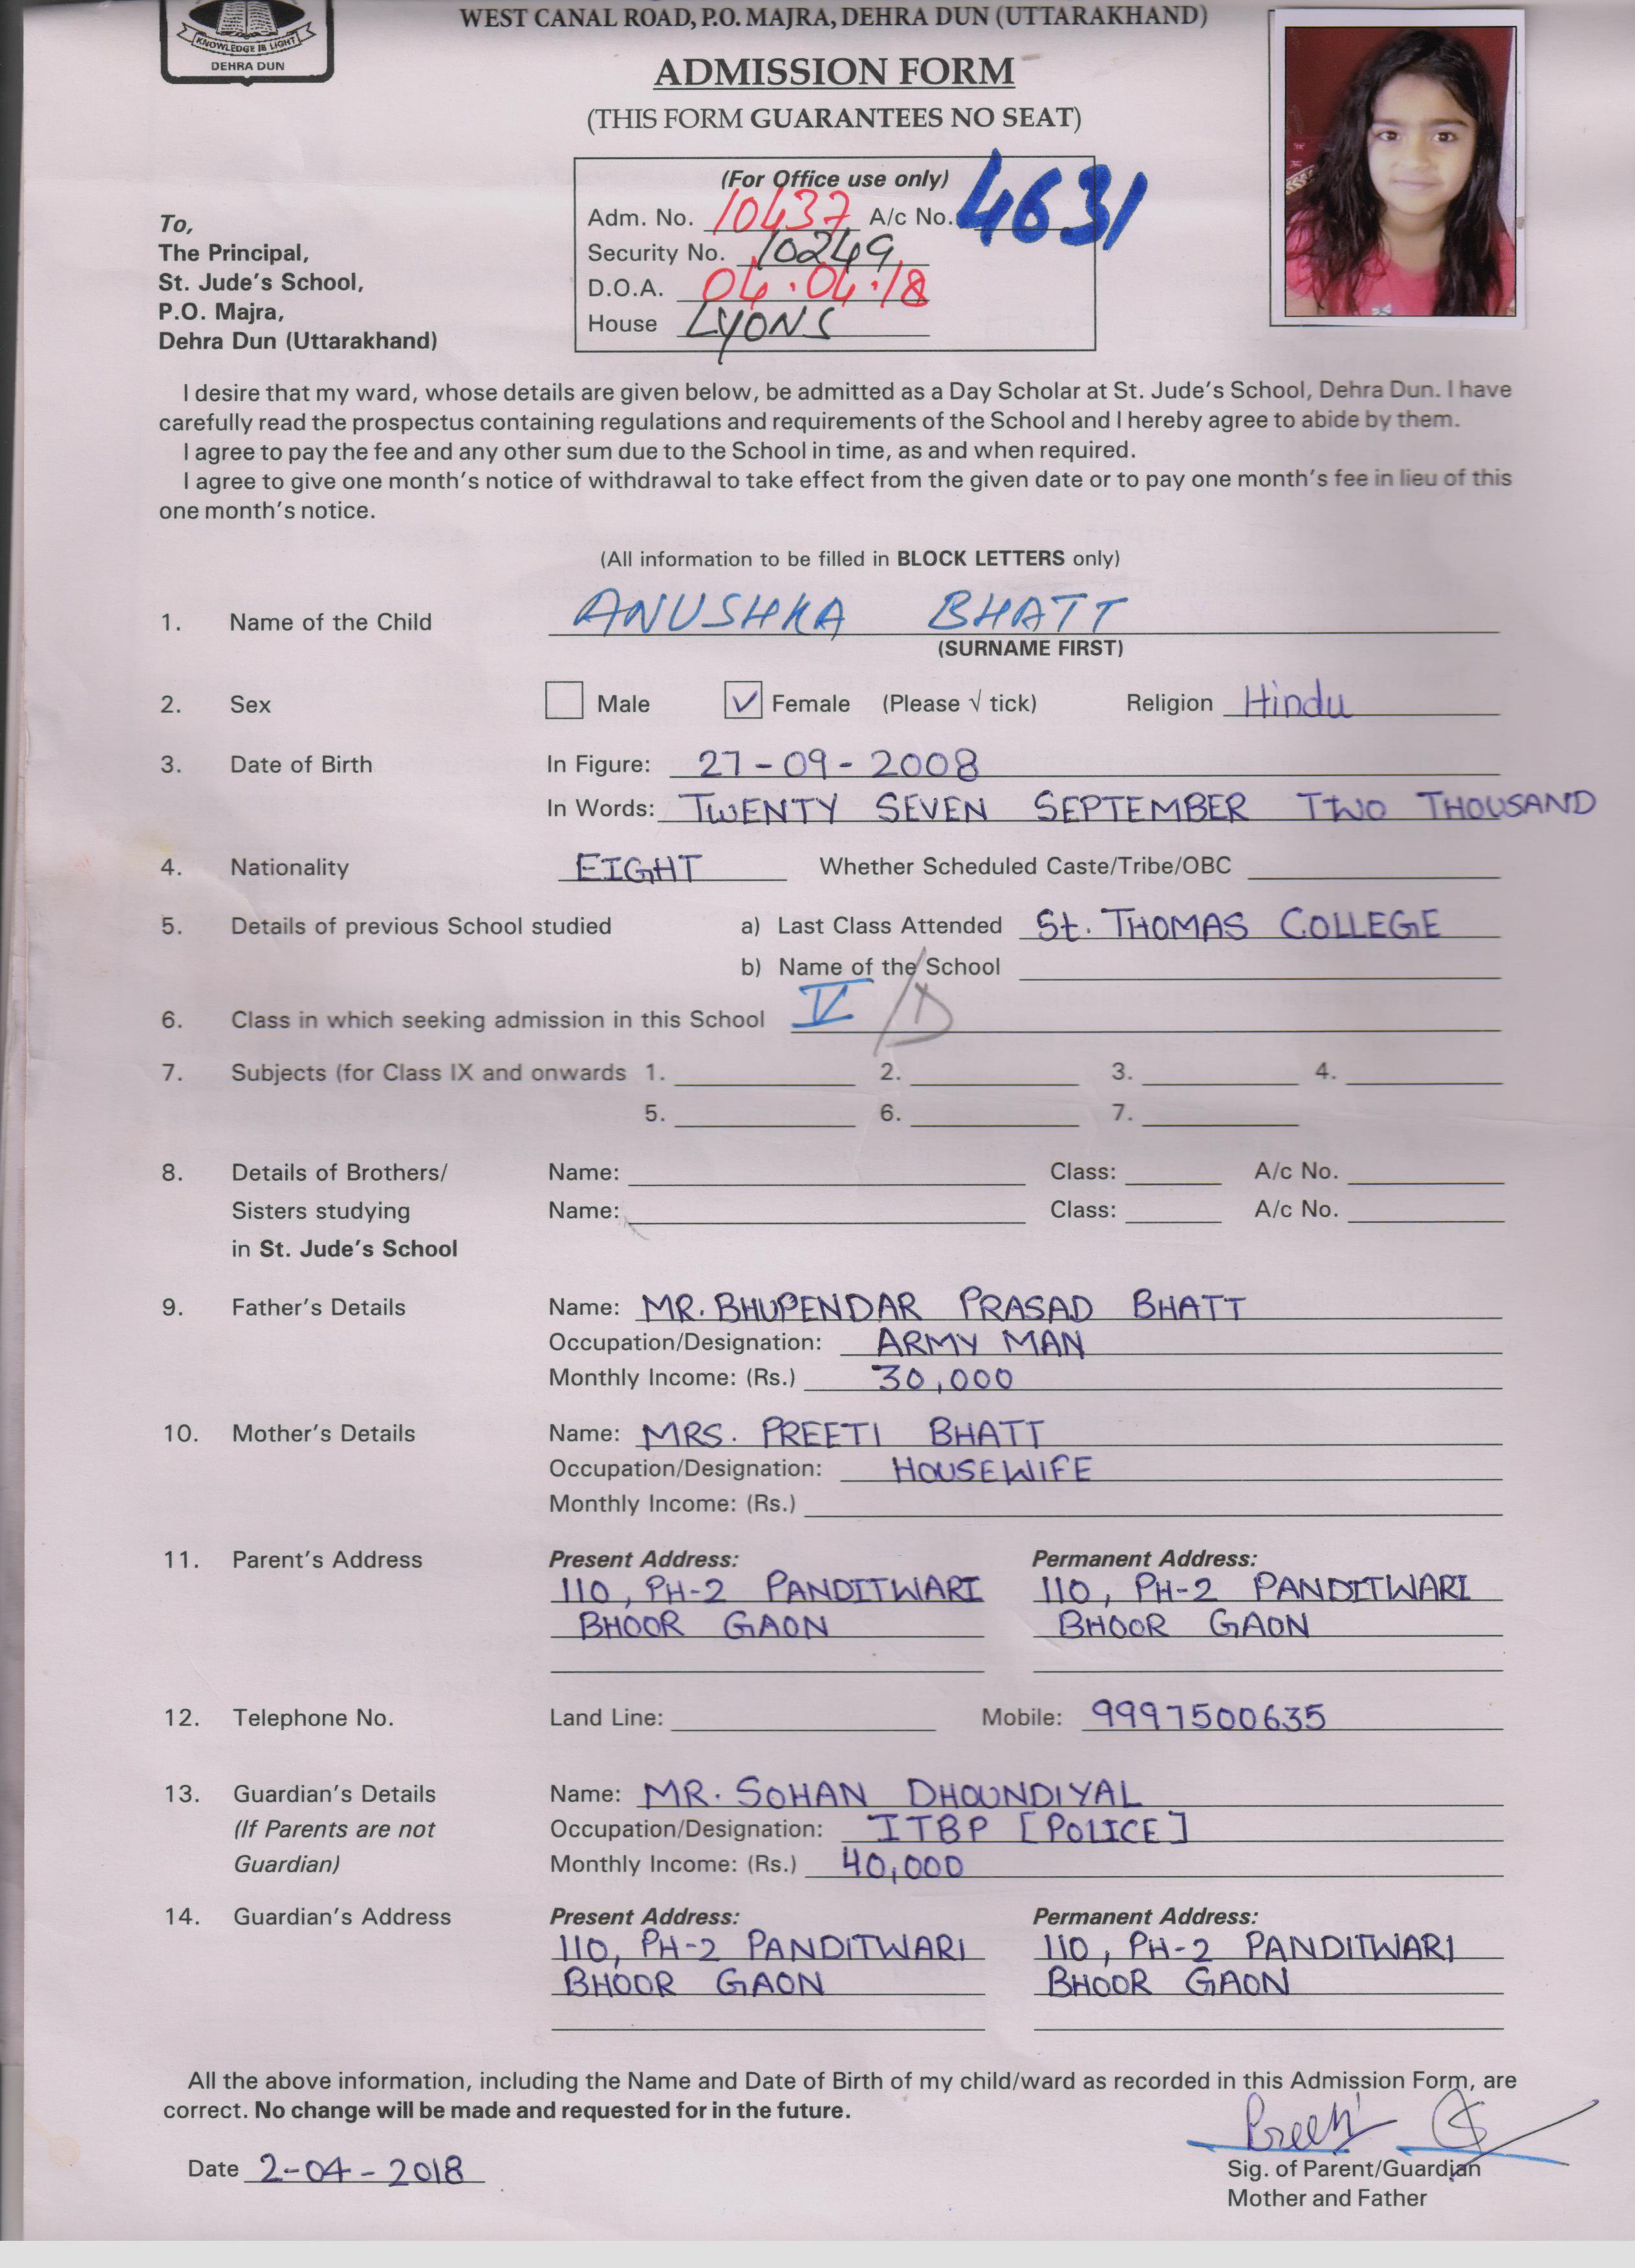 KNOWLEDGE IS LIGHT
DEHRA DUN
WEST CANAL ROAD, P.O. MAJRA, DEHRA DUN (UTTARAKHAND)
ADMISSION FORM
(THIS FORM GUARANTEES NO SEAT)
(For Office use only)
Adm. No. 10437 A/c No. 4631
Security No. 10249
D.O.A. 04.04.18
House LYONS
To,
The Principal,
St. Jude's School,
P.O. Majra,
Dehra Dun (Uttarakhand)
I desire that my ward, whose details are given below, be admitted as a Day Scholar at St. Jude's School, Dehra Dun. I have
carefully read the prospectus containing regulations and requirements of the School and I hereby agree to abide by them.
I agree to pay the fee and any other sum due to the School in time, as and when required.
I agree to give one month's notice of withdrawal to take effect from the given date or to pay one month's fee in lieu of this
one month's notice.
(All information to be filled in BLOCK LETTERS only)
1. Name of the Child ANUSHKA BHATT
(SURNAME FIRST)
2. Sex Male ✓ Female (Please √ tick) Religion Hindu
3. Date of Birth In Figure: 27-09-2008
In Words: TWENTY SEVEN SEPTEMBER TWO THOUSAND
4. Nationality EIGHT Whether Scheduled Caste/Tribe/OBC
5. Details of previous School studied a) Last Class Attended St. THOMAS COLLEGE
b) Name of the School
6. Class in which seeking admission in this School V /D
7. Subjects (for Class IX and onwards 1. 2. 3. 4.
5. 6. 7.
8. Details of Brothers/ Name: Class: A/c No.
Sisters studying Name: Class: A/c No.
in St. Jude's School
9. Father's Details Name: MR. BHUPENDAR PRASAD BHATT
Occupation/Designation: ARMY MAN
Monthly Income: (Rs.) 30,000
10. Mother's Details Name: MRS. PREETI BHATT
Occupation/Designation: HOUSEWIFE
Monthly Income: (Rs.)
11. Parent's Address Present Address: Permanent Address:
110, PH-2 PANDITWARI 110, PH-2 PANDITWARI
BHOOR GAON BHOOR GAON
12. Telephone No. Land Line: Mobile: 9997500635
13. Guardian's Details Name: MR. SOHAN DHOUNDIYAL
(If Parents are not Occupation/Designation: ITBP [POLICE]
Guardian) Monthly Income: (Rs.) 40,000
14. Guardian's Address Present Address: Permanent Address:
110, PH-2 PANDITWARI 110, PH-2 PANDITWARI
BHOOR GAON BHOOR GAON
All the above information, including the Name and Date of Birth of my child/ward as recorded in this Admission Form, are
correct. No change will be made and requested for in the future.
Preeti
Date 2-04-2018 Sig. of Parent/Guardian
Mother and Father